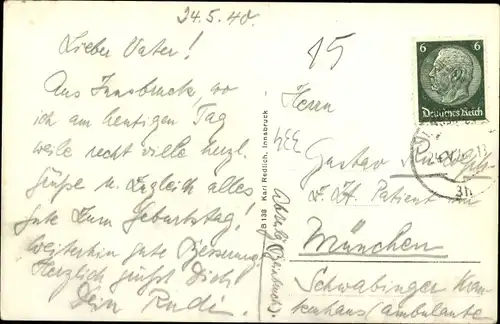 24.5.40.
Lieber Vater!
Aus Innsbruck, wo
ich am heutigen Tag
weile recht viele herzl.
Grüße u. zugleich alles
gute zum Geburtstag!
Weiterhin gute Besserung!
Herzlich grüßt Dich
Dein Rudi.
B 138 Karl Redlich, Innsbruck
15
6 6
Deutsches Reich
Herrn
Gustav
z. Zt. Patient in
München
Schwabinger Kran-
kenhaus (Ambulante